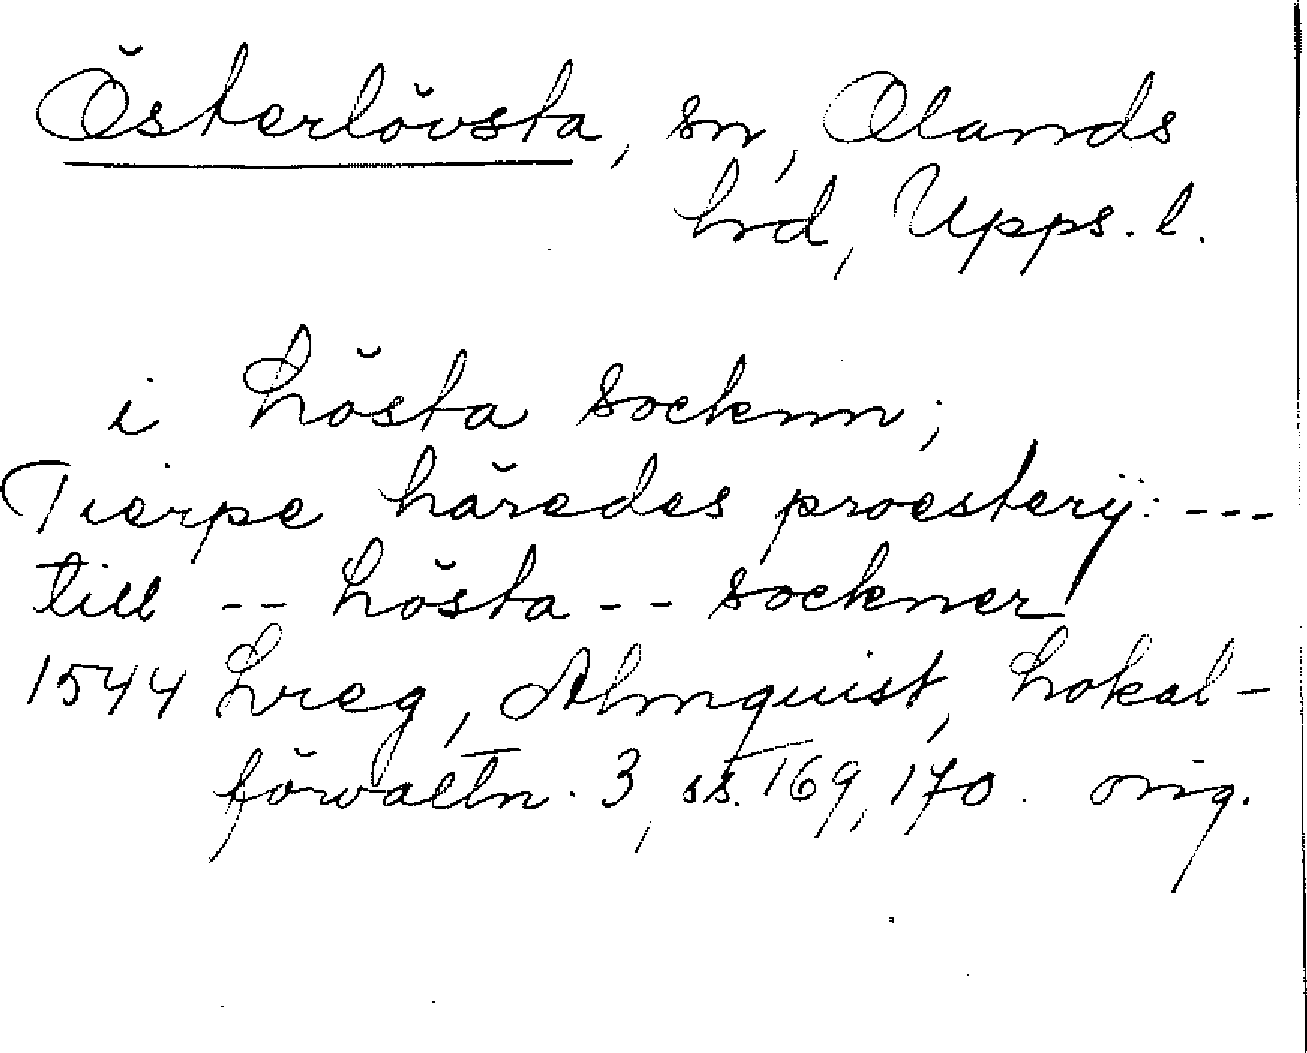 Österlövsta, sn, Olands
hrd, Upps. l.
i Lösta socknn;
Tierpe häredes proesterij: ---
till -- Lösta -- sockner
1544 Lreg, Almquist, Lokal-
förvaltn. 3, ss. 169, 170. orig.